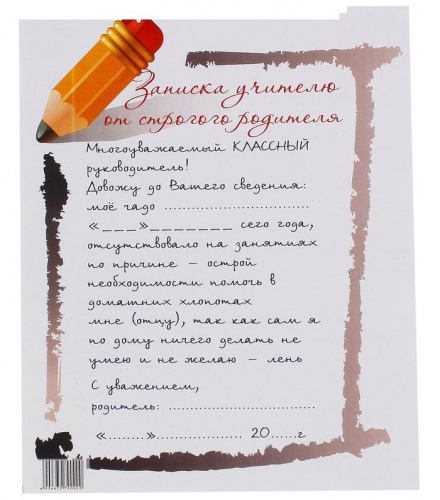 Записка учителю
от строгого родителя
Многоуважаемый КЛАССНЫЙ
руководитель!
Довожу до Вашего сведения:
моё чадо ..............................
«___»________ сего года,
отсутствовало на занятиях
по причине – острой
необходимости помочь в
домашних хлопотах
мне (отцу), так как сам я
по дому ничего делать не
умею и не желаю – лень
С уважением,
родитель: ..............................
«........».................... 20......г